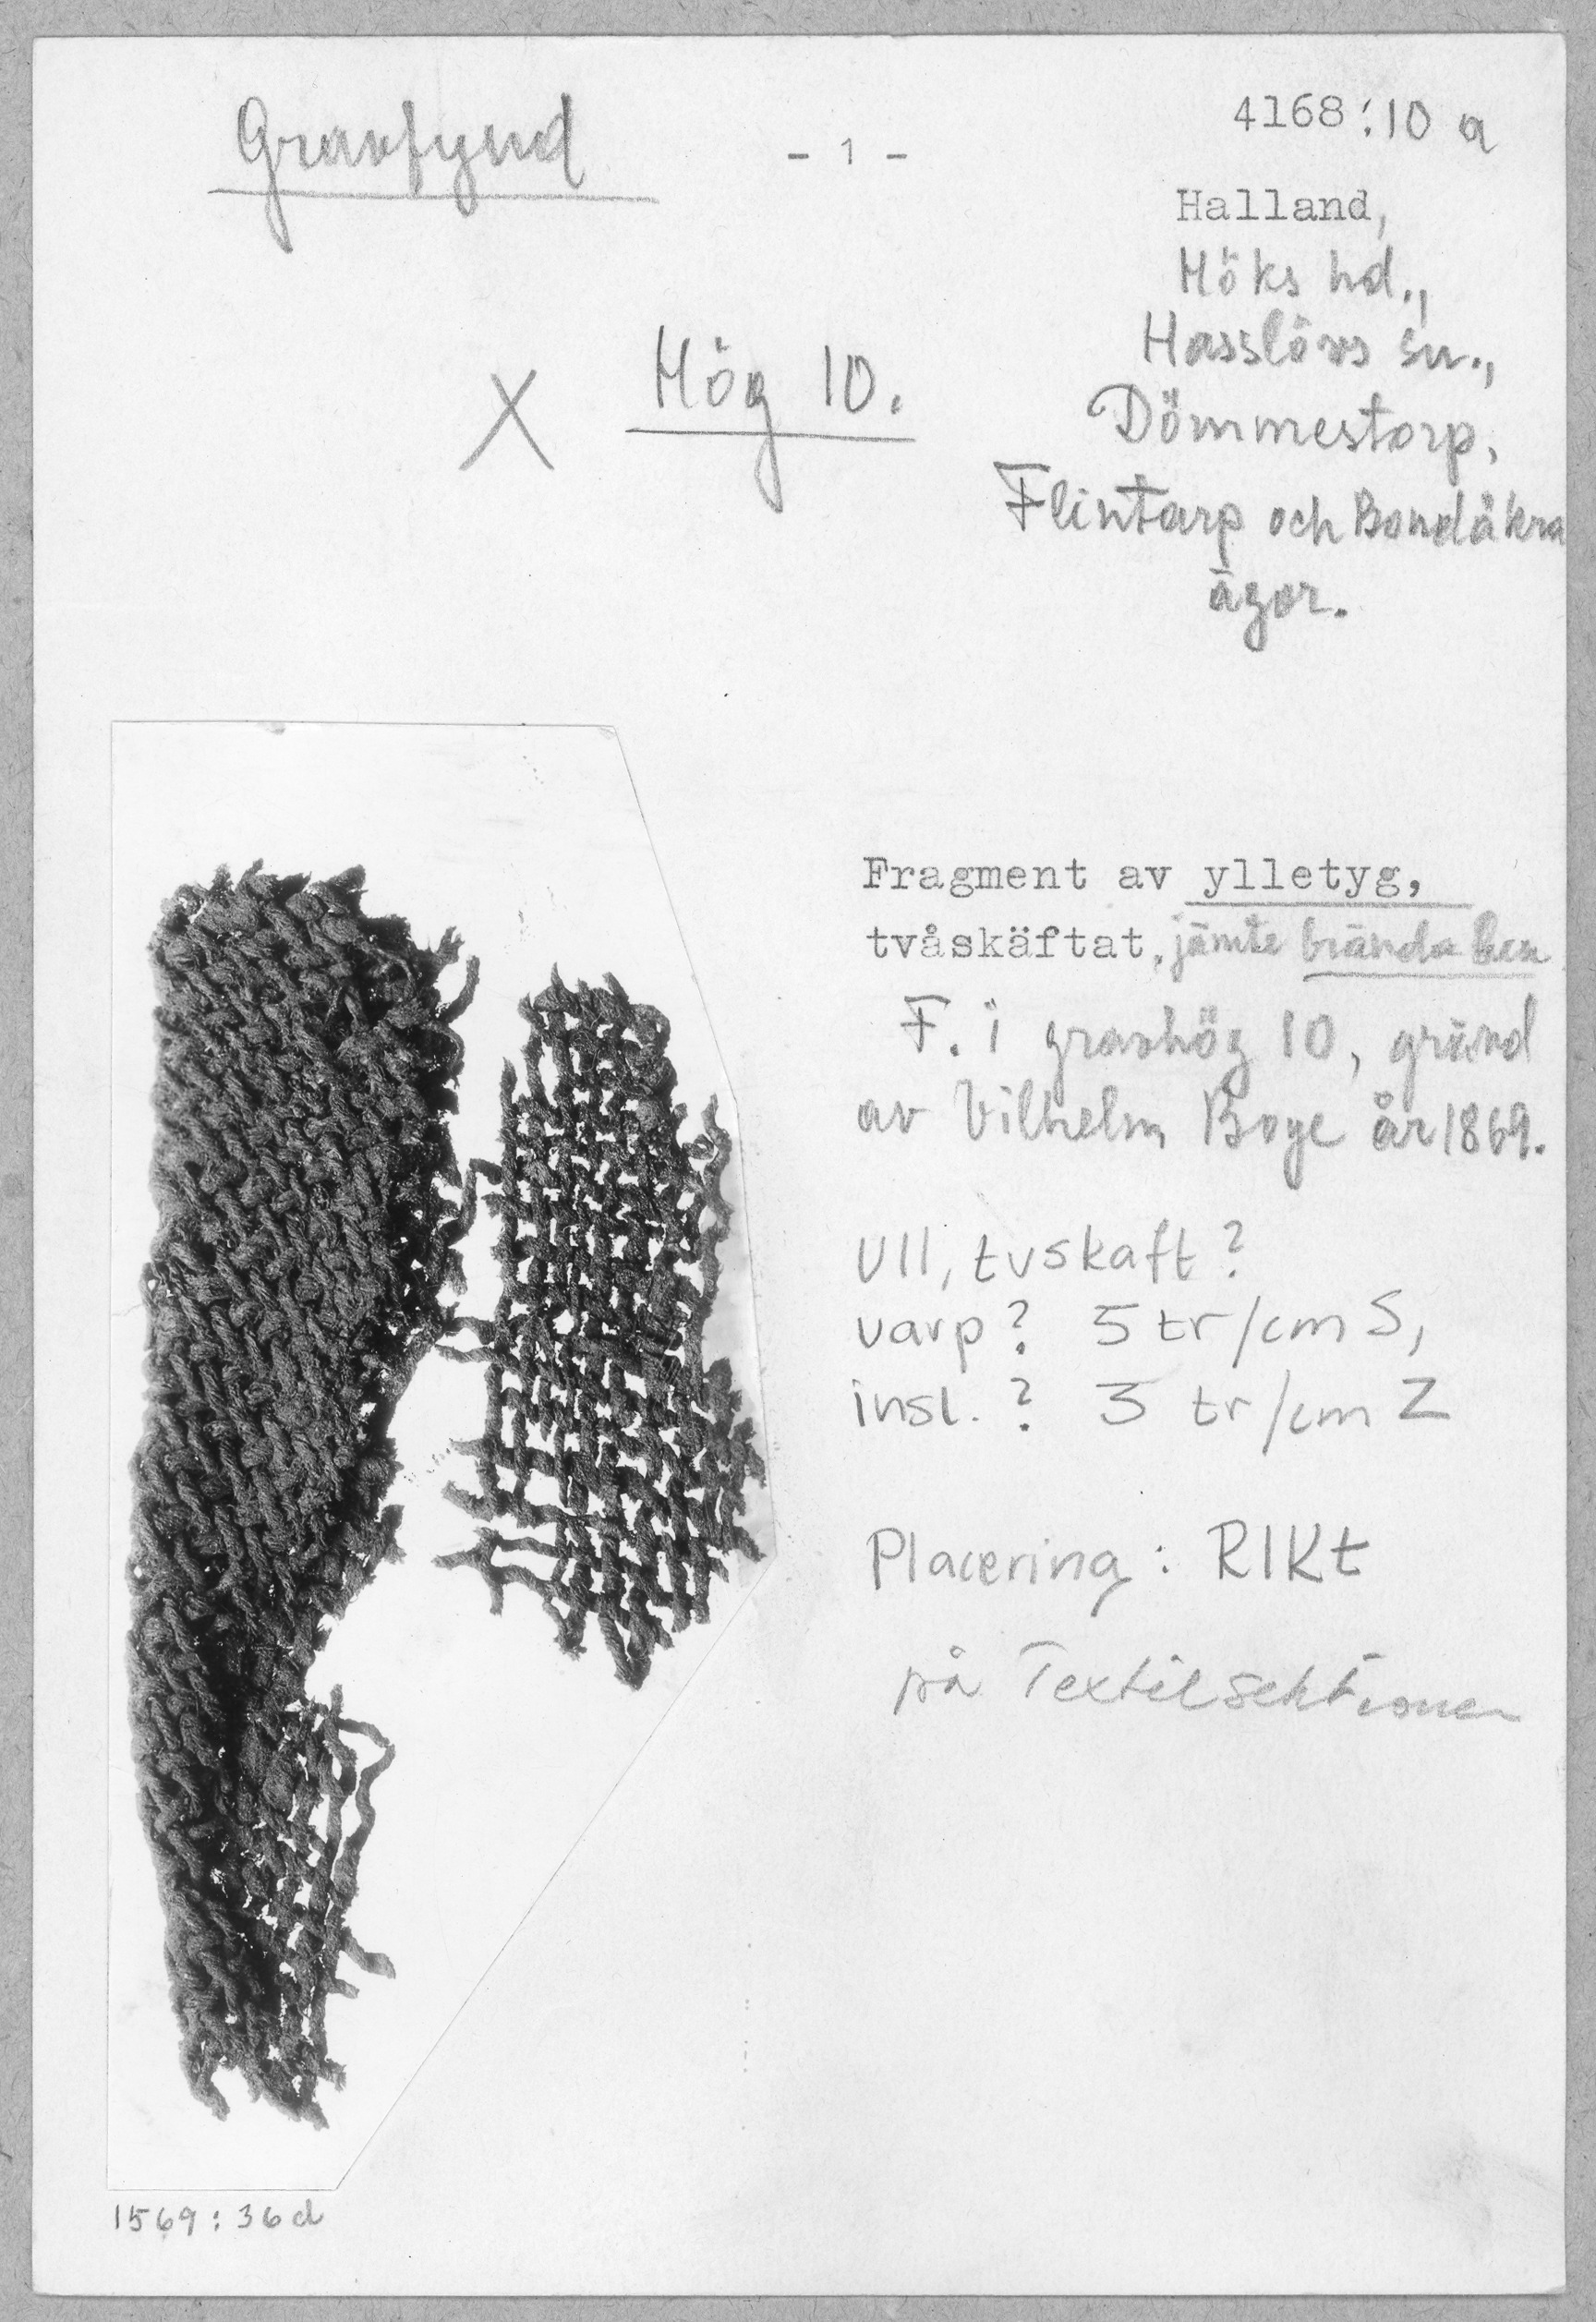 Gravfynd
- 1 -
4168:10 a
Halland,
Höks hd.,
Hasslövs sn.,
Dömmestorp,
Flintarp och Bondåkra
ägor.
X Hög 10.
Fragment av ylletyg,
tvåskäftat, jämte brända ben
F. i gravhög 10, gränd
av Vilhelm Boye år 1869.
Ull, tvskaft?
varp? 5 tr/cm S,
insl.? 3 tr/cm Z
Placering: RIKt
på Textilsektionen
1569:36d